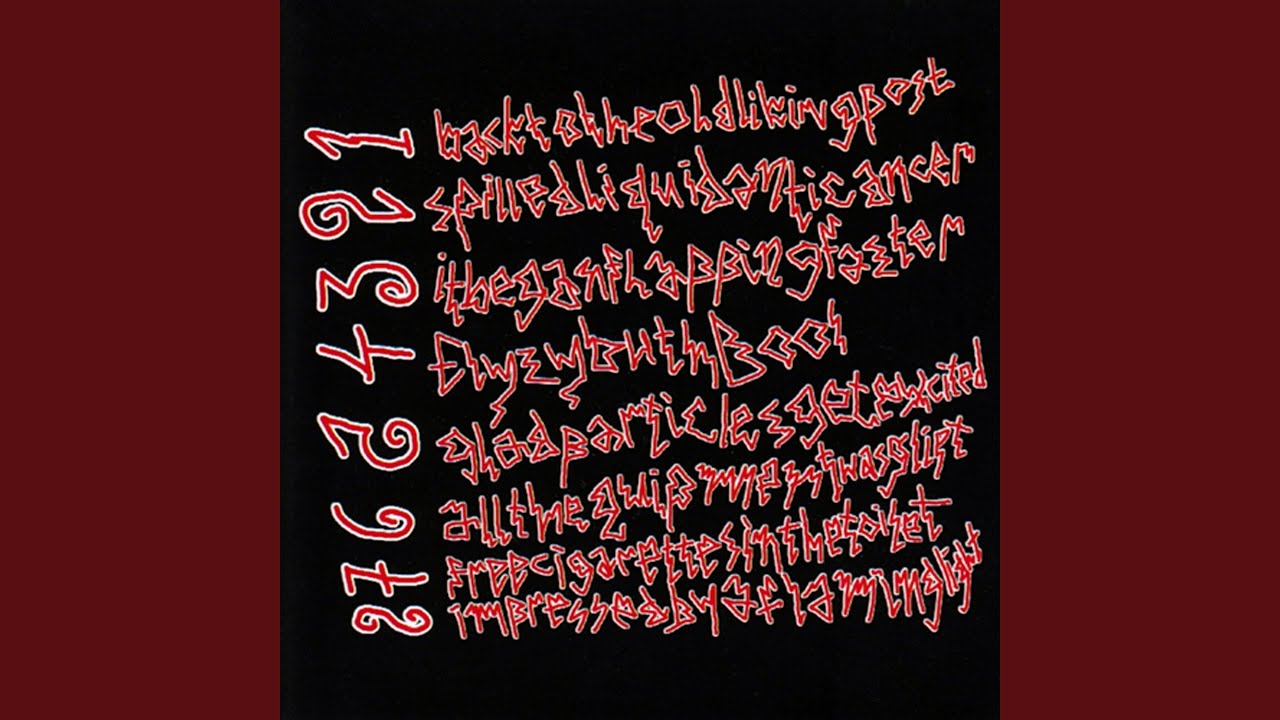 1 backtotheoldlikingpost
2 spilledliquidanticancer
3 itbeganflappingfaster
4 Elyzyouth Boos
5 gladparticlesgetexcited
6 alltheequipmnestwasglipt
7 freecigarettesinthetoilet
8 impressedbyaflaminglight